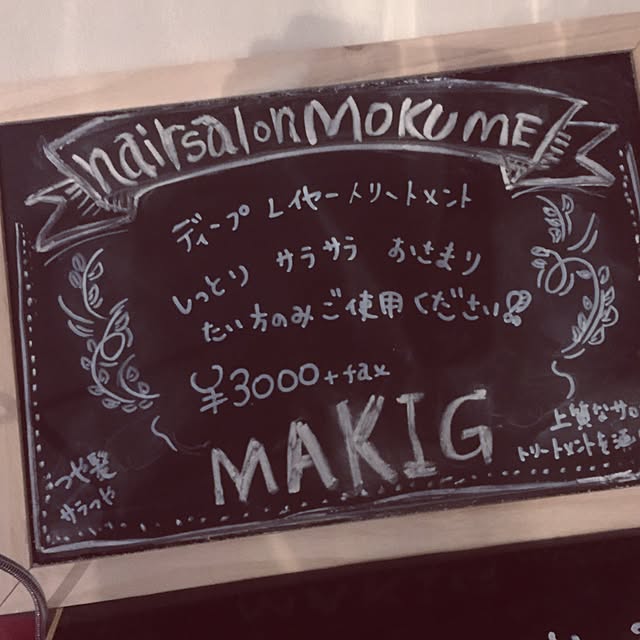 hairsalon MOKUME
ディープ レイヤートリートメント
しっとり サラサラ おさまり
たい方のみご使用ください
¥3000+tax
MAKIG
つや髪
サラつや
上質なサ
トリートメントを